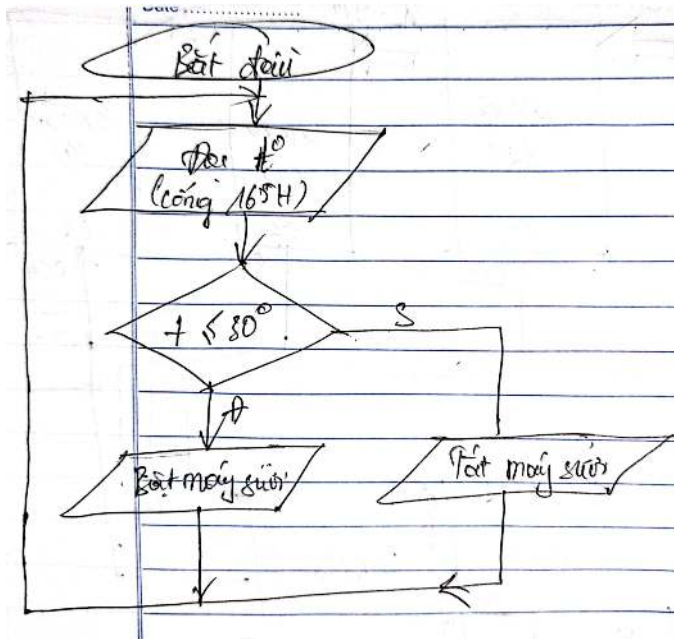 Date
Bắt đầu
Đọc t°
(cổng 165H)
t ≤ 30°
S
Đ
Bật máy sưởi
Tắt máy sưởi